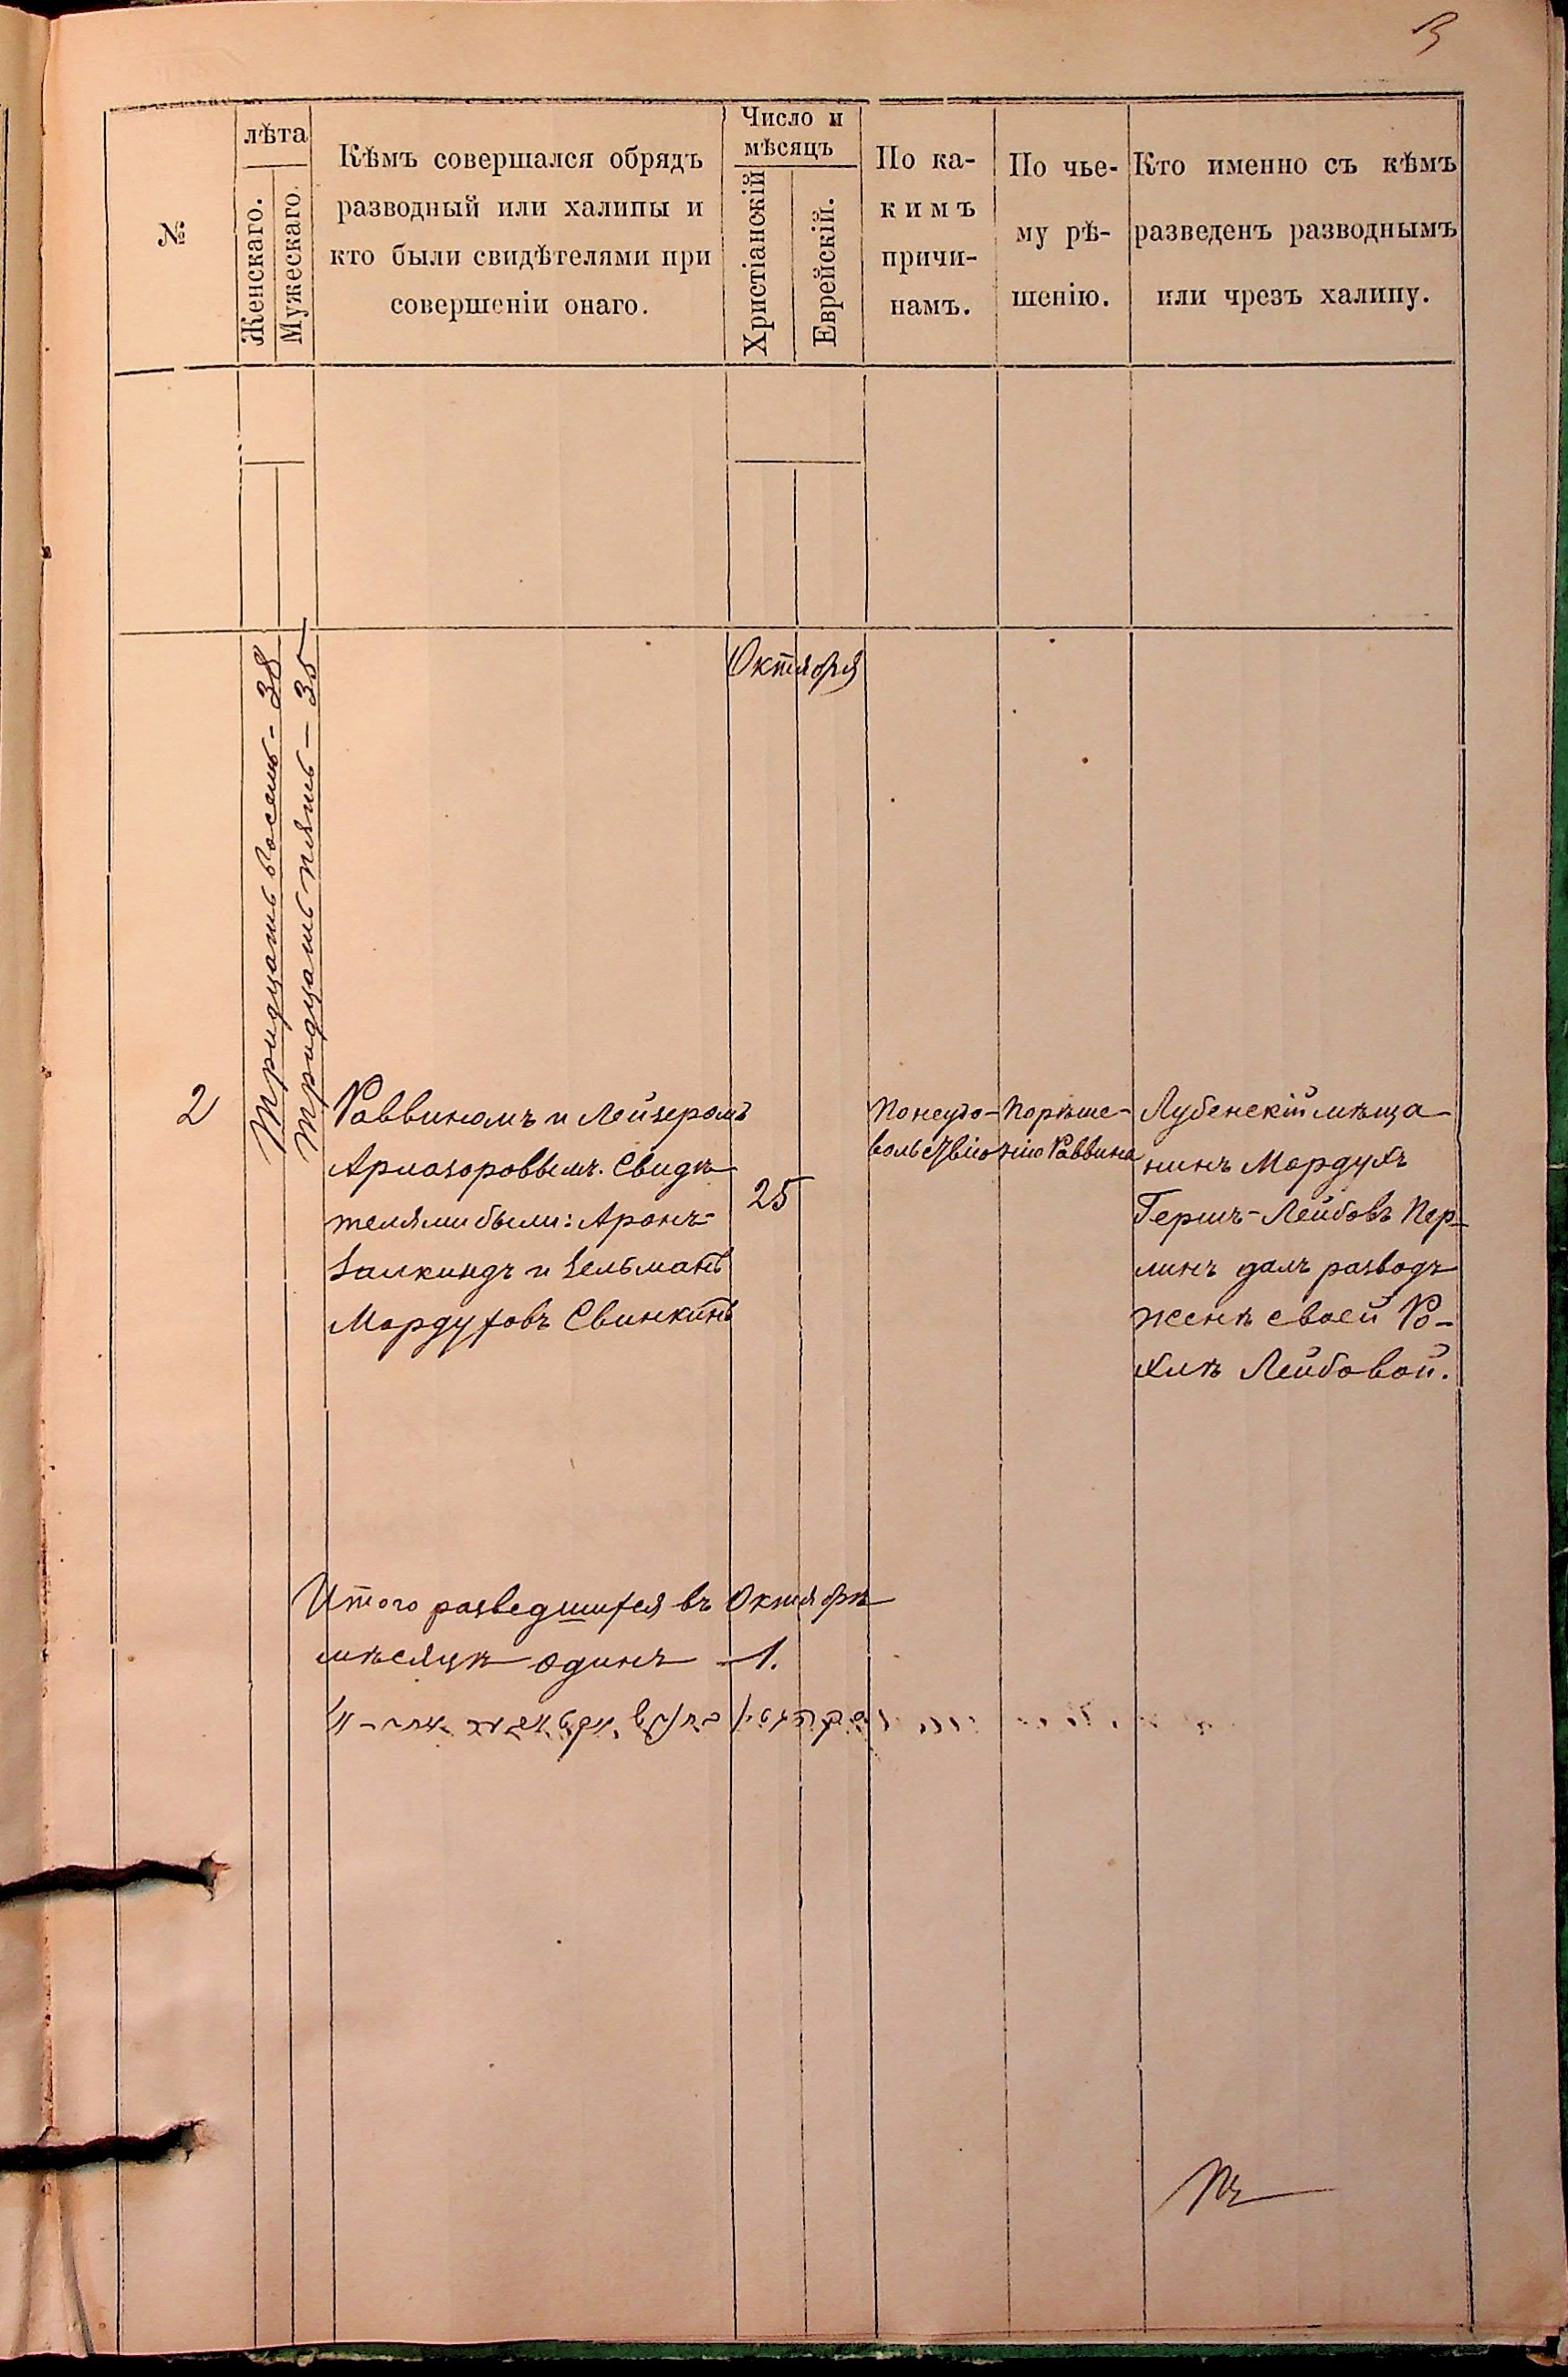 3
№
лѣта
Женскаго.
Мужескаго.
Кѣмъ совершался обрядъ
разводный или халипы и
кто были свидѣтелями при
совершеніи онаго.
Число и
мѣсяцъ
Христіанскій
Еврейскій.
По ка-
кимъ
причи-
намъ.
По чье-
му рѣ-
шенію.
Кто именно съ кѣмъ
разведенъ разводнымъ
или чрезъ халипу.
Октября
2
Тридцать восемь - 38
Тридцать пять - 35
Раввиномъ и Лейзеромъ
Свидѣ-
телями были: Аронъ-
Залкиндъ и Зельманъ
Мордуховъ Свинкинъ
25
По неудо-
вольствію
По рѣше-
нію Раввина
Лубенскій мѣща-
нинъ Мордухъ
Гершъ-Лейбовъ Пер-
линъ далъ разводъ
женѣ своей Ро-
хлѣ Лейбовой.
Итого разведшихся въ Октябрѣ
мѣсяцѣ одинъ - 1.